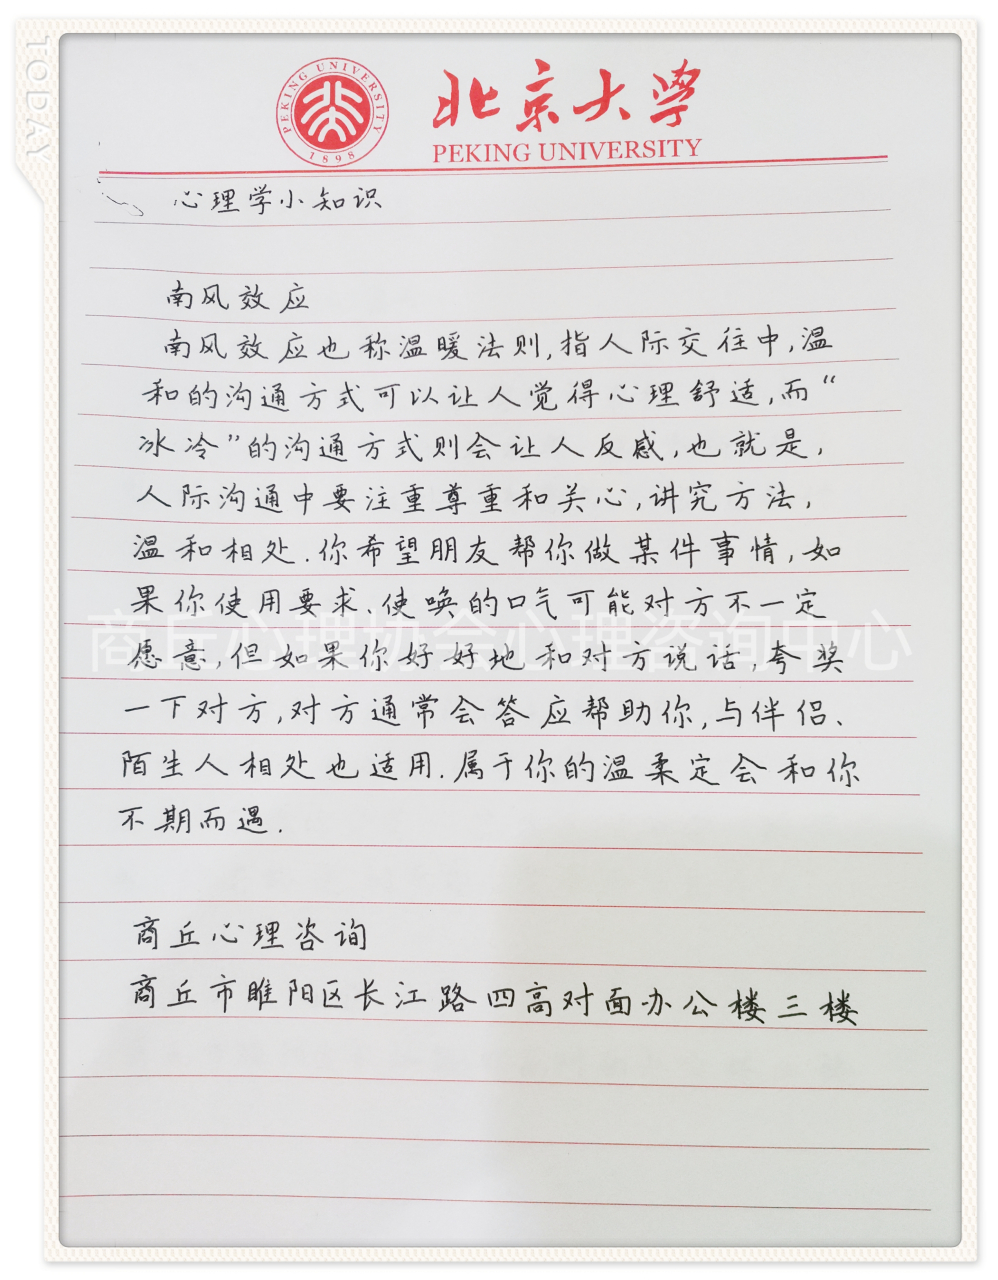 TODAY
PEKING UNIVERSITY
1898
北京大学
PEKING UNIVERSITY
心理学小知识
南风效应
南风效应也称温暖法则,指人际交往中,温
和的沟通方式可以让人觉得心理舒适,而“
冰冷”的沟通方式则会让人反感,也就是,
人际沟通中要注重尊重和关心,讲究方法,
温和相处.你希望朋友帮你做某件事情,如
果你使用要求、使唤的口气可能对方不一定
愿意,但如果你好好地和对方说话,夸奖
一下对方,对方通常会答应帮助你,与伴侣、
陌生人相处也适用.属于你的温柔定会和你
不期而遇.
商丘心理咨询
商丘市睢阳区长江路四高对面办公楼三楼
商丘心理协会心理咨询中心